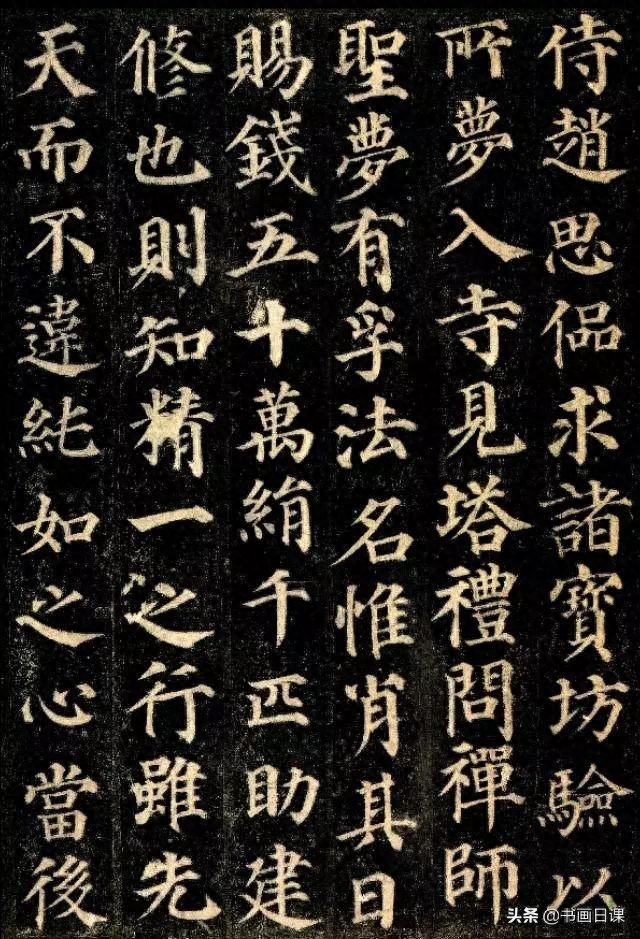 侍趙思偘求諸寶坊驗以
所夢入寺見塔禮問禪師
聖夢有孚法名惟肖其日
賜錢五十萬絹千匹助建
修也則知精一之行雖先
天而不違純如之心當後
头条 @书画日课